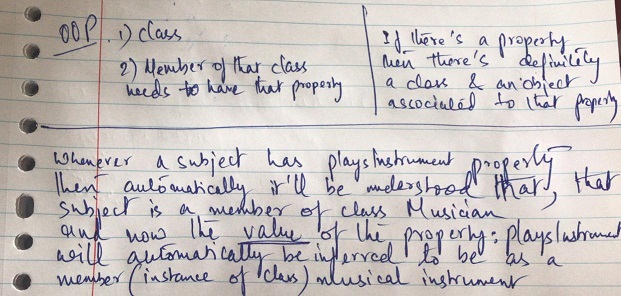 OOP. 1) Class
2) Member of that class
needs to have that property
If there's a property
then there's definitely
a class & an object
associated to that property
Whenever a subject has playsInstrument property
then automatically it'll be understood that, that
subject is a member of class Musician
and now the value of the property: playsInstrument
will automatically be inferred to be as a
member (instance of class) musical instrument